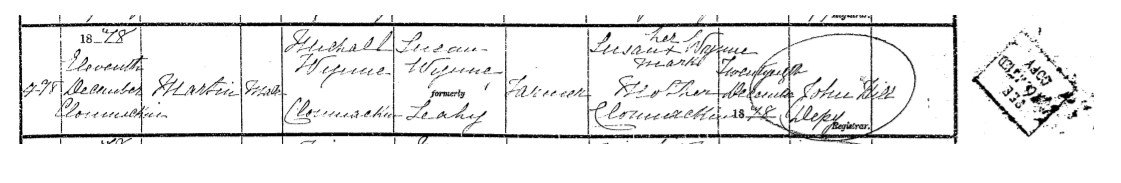 Registrar.
1878
Eleventh
December
Clonmackin
Martin
Male
Michael
Wynne
Clonmackin
Susan
Wynne
formerly
Leahy
Farmer
Susan Wynne
her
mark
Mother
Clonmackin
Twentyeth
December
1878
John
Depy
Registrar.
SEE
COPY